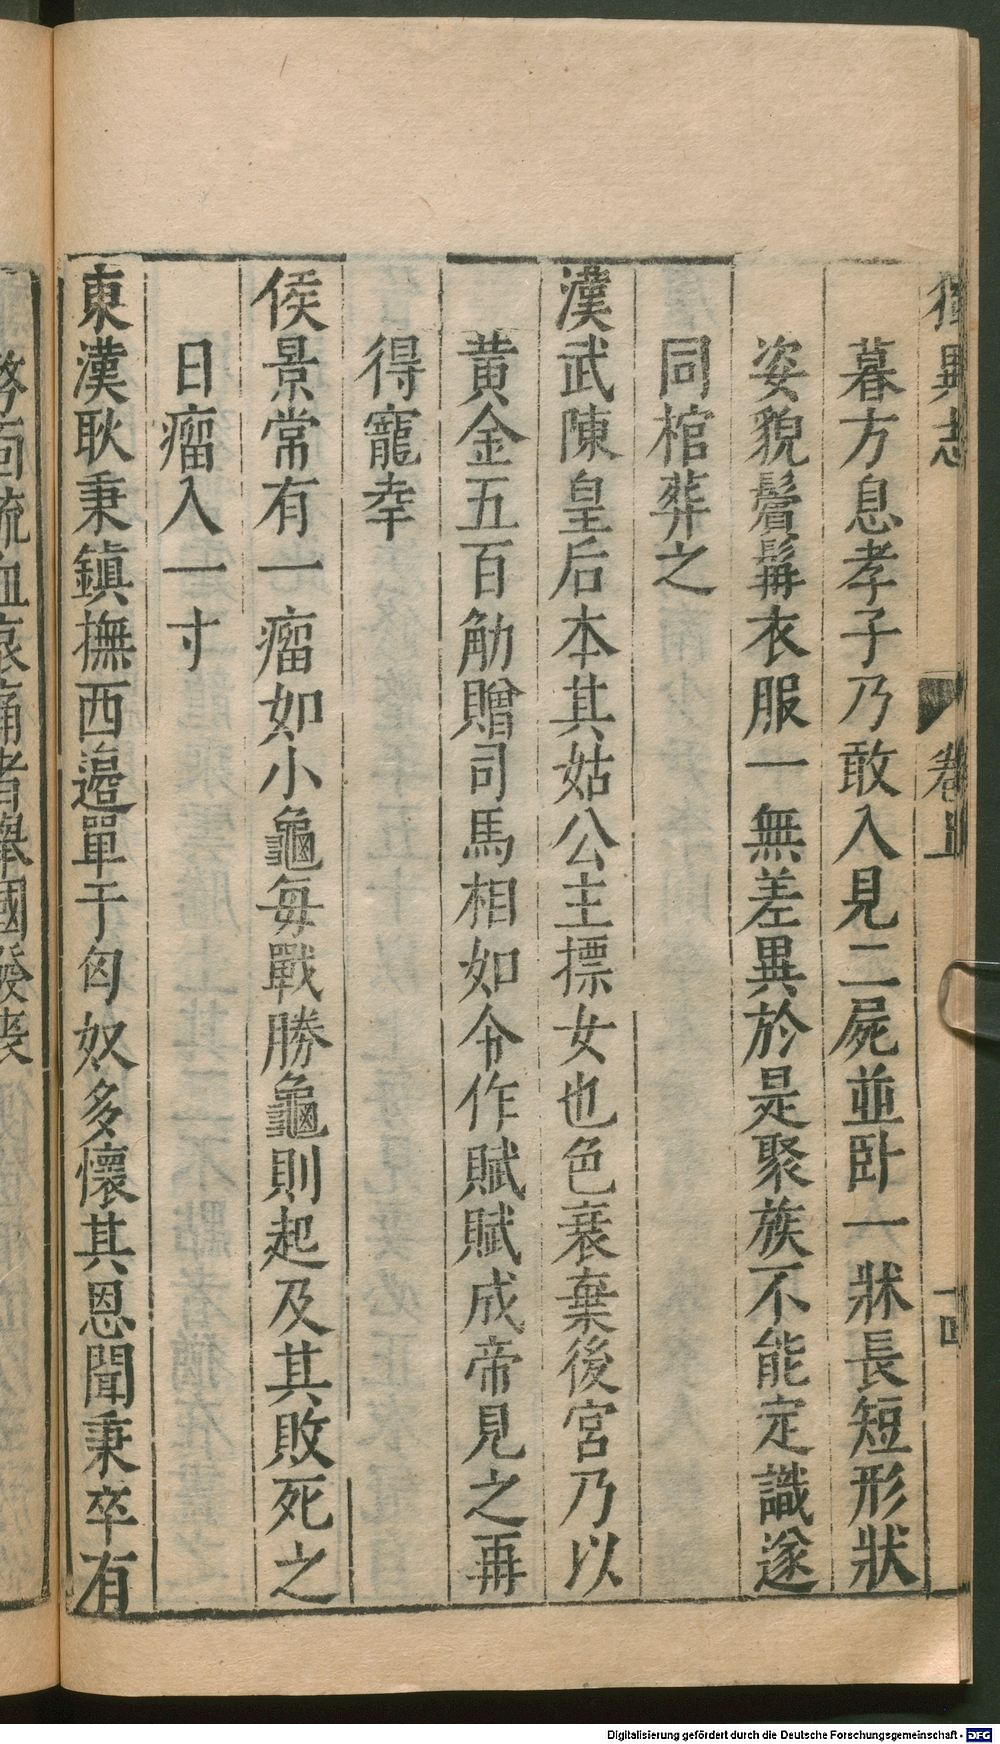 獨異志 卷上 十四
暮方息孝子乃敢入見二屍並卧一牀長短形狀
姿貌鬢髯衣服一無差異於是聚族不能定識遂
同棺葬之
漢武陳皇后本其姑公主摽女也色衰棄後宮乃以
黄金五百觔贈司馬相如令作賦賦成帝見之再
得寵幸
侯景常有一瘤如小龜每戰勝龜則起及其敗死之
日瘤入一寸
東漢耿秉鎮撫西邉單于匈奴多懷其恩聞秉卒有
面流血哀痛者舉國發喪
Digitalisierung gefördert durch die Deutsche Forschungsgemeinschaft - DFG